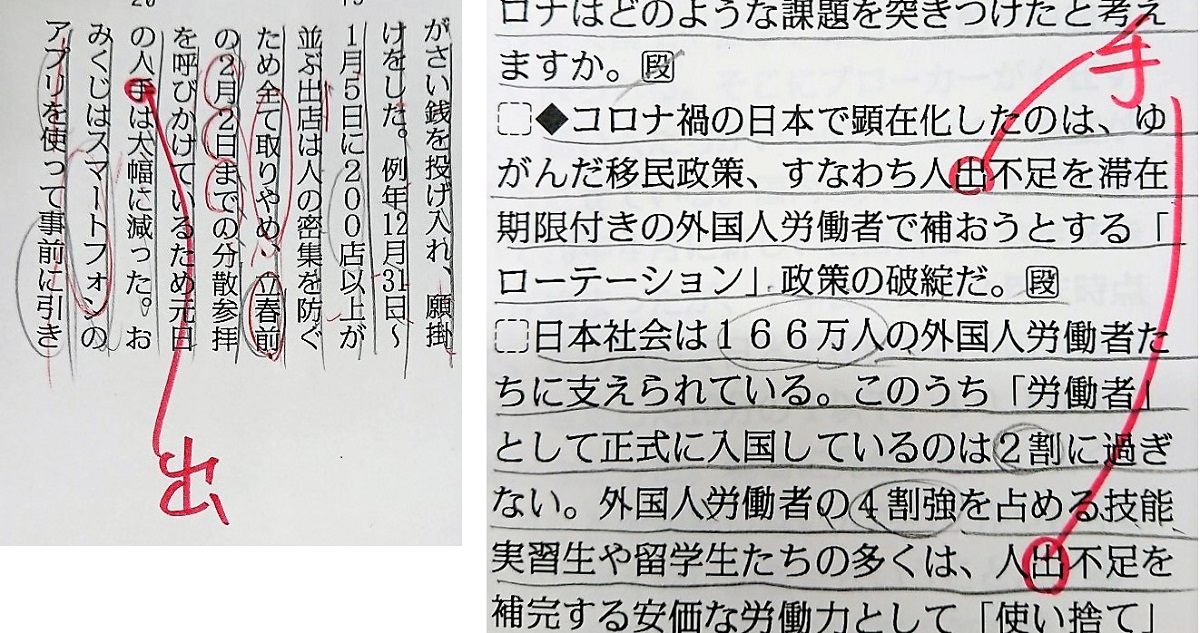 がさい銭を投げ入れ、願掛
けをした。例年12月31日〜
1月5日に200店以上が
並ぶ出店は人の密集を防ぐ
ため全て取りやめ、立春前
の2月2日までの分散参拝
を呼びかけているため元日
の人手は大幅に減った。お
みくじはスマートフォンの
アプリを使って事前に引き
出
ロナはどのような課題を突きつけたと考え
ますか。段
◆コロナ禍の日本で顕在化したのは、ゆ
がんだ移民政策、すなわち人出不足を滞在
期限付きの外国人労働者で補おうとする「
ローテーション」政策の破綻だ。段
日本社会は166万人の外国人労働者た
ちに支えられている。このうち「労働者」
として正式に入国しているのは2割に過ぎ
ない。外国人労働者の4割強を占める技能
実習生や留学生たちの多くは、人出不足を
補完する安価な労働力として「使い捨て」
手